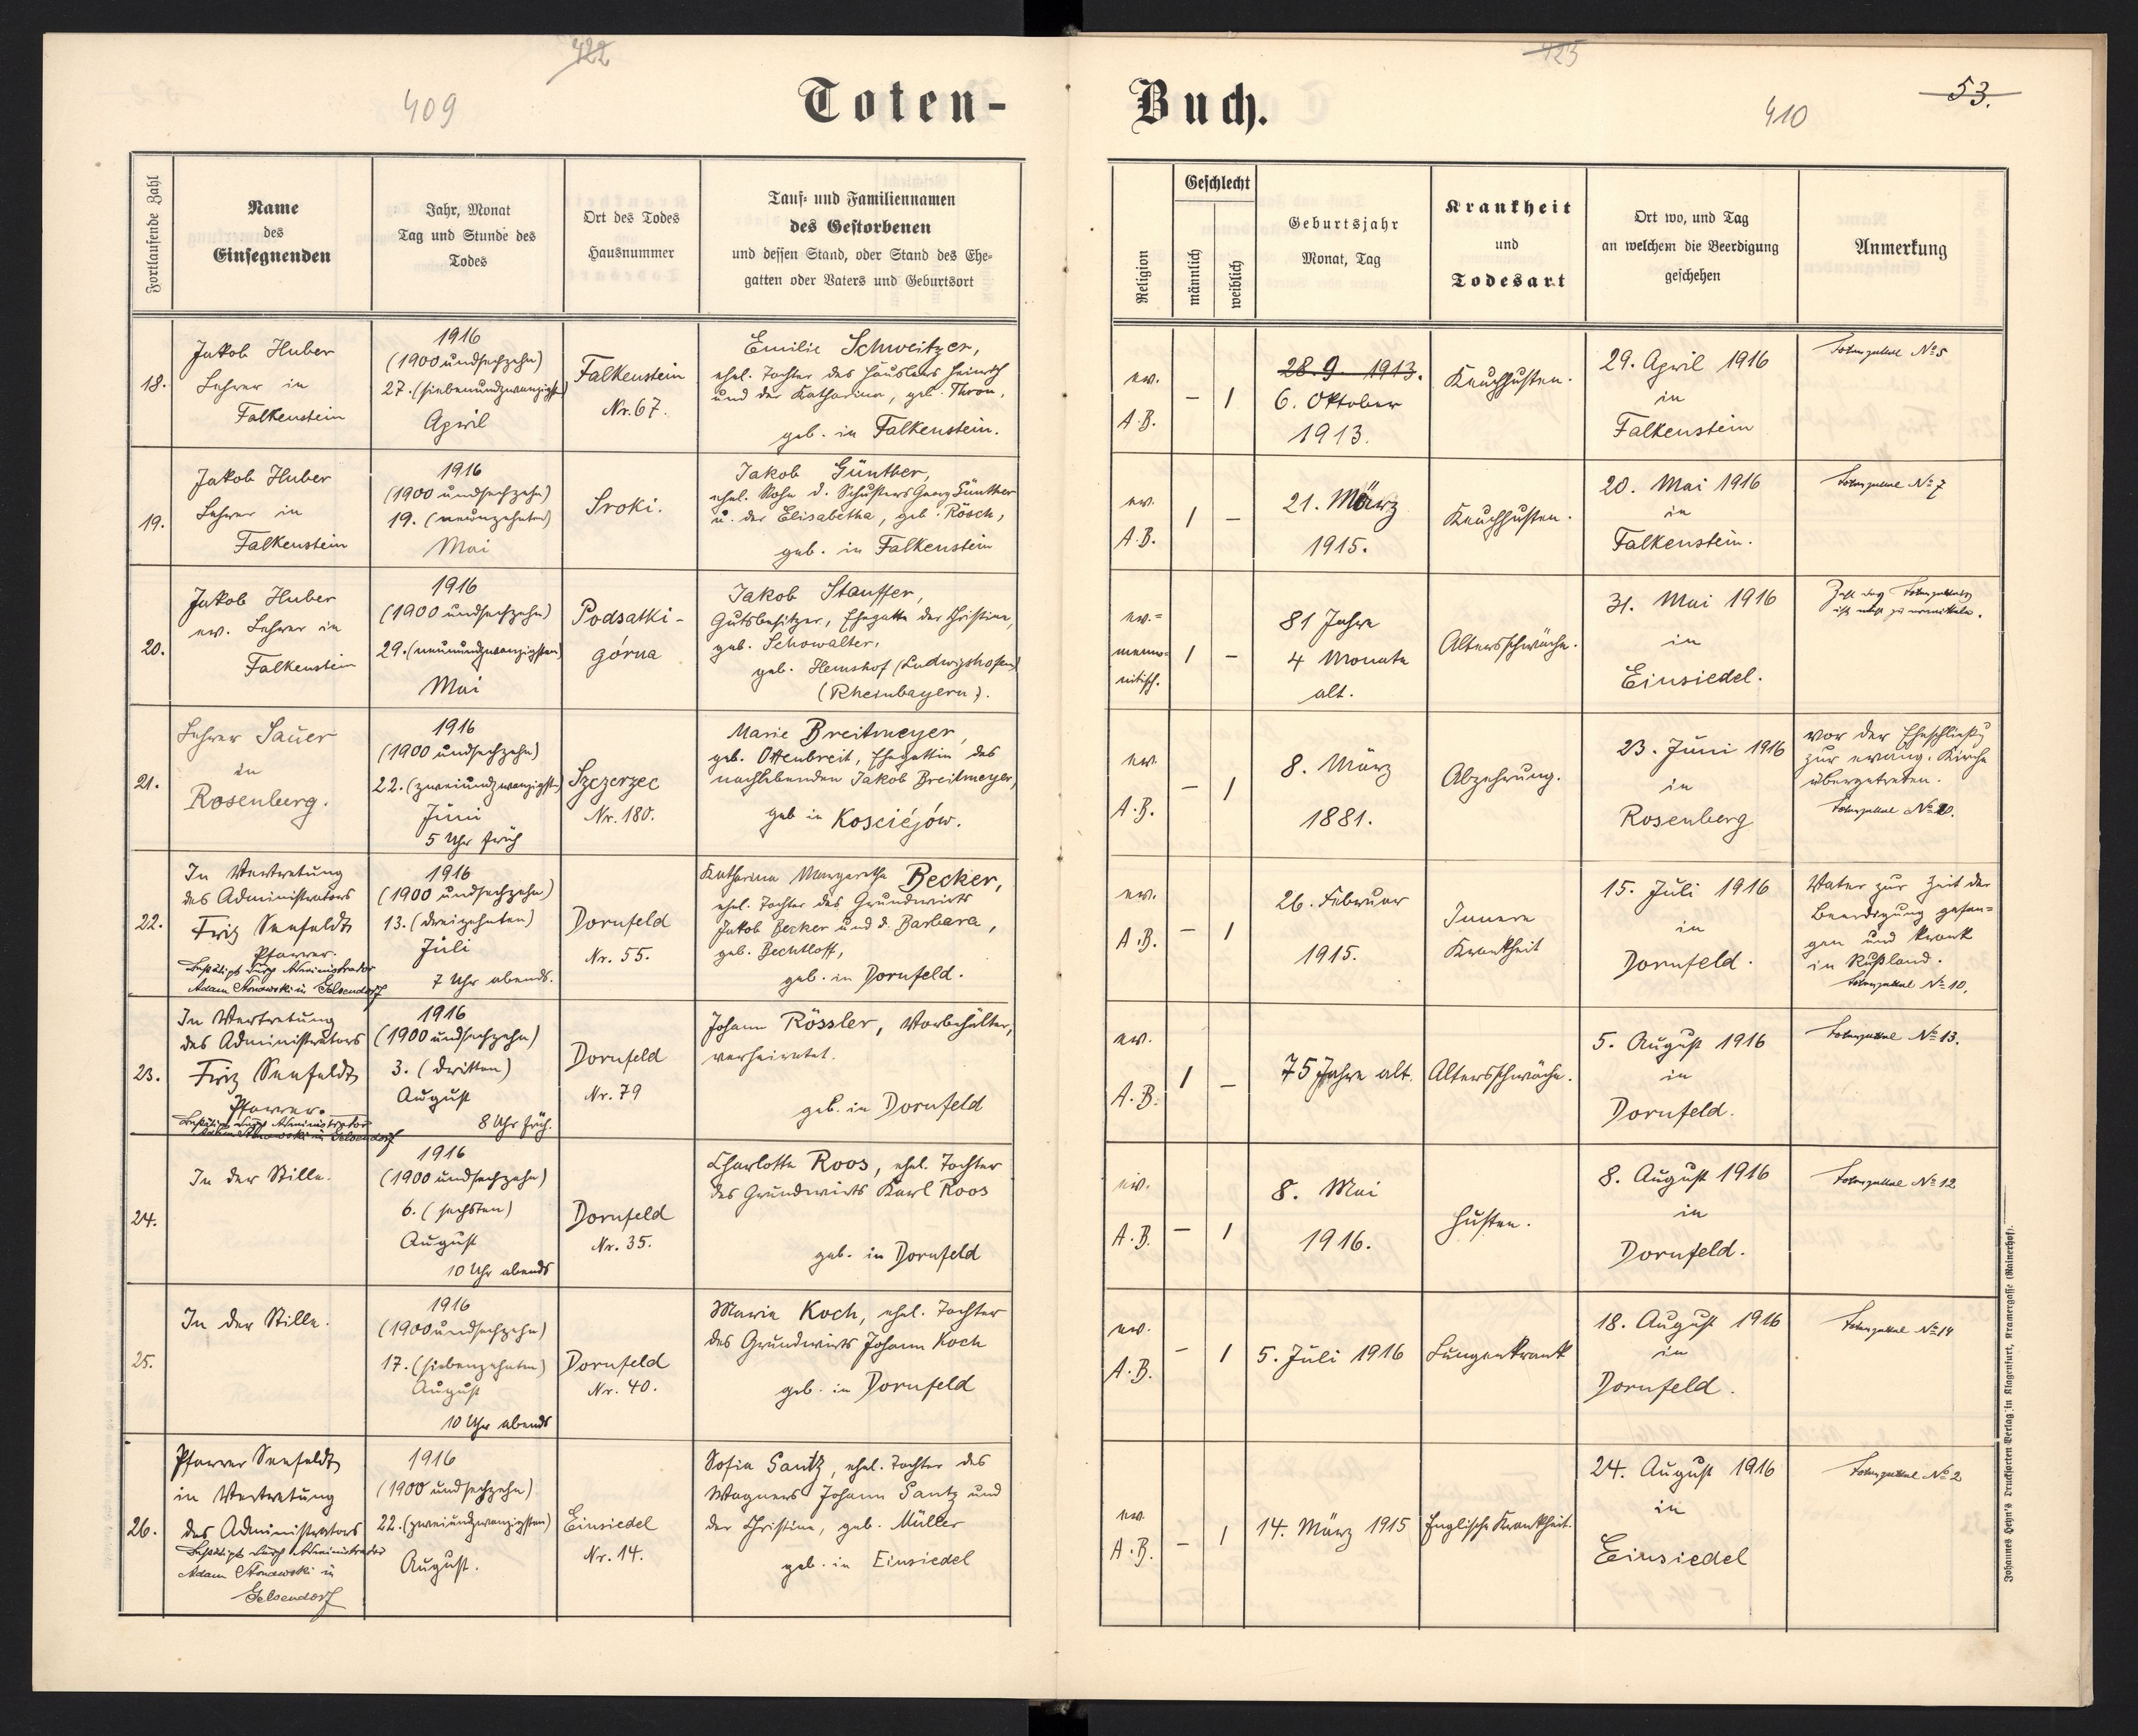 422
409
Toten-
Fortlaufende Zahl
Name
des
Einsegnenden
Jahr, Monat
Tag und Stunde des
Todes
Ort des Todes
Hausnummer
Tauf- und Familiennamen
des Gestorbenen
und dessen Stand, oder Stand des Ehe-
gatten oder Vaters und Geburtsort
18.
Jakob Huber
Lehrer in
Falkenstein
1916
(1900 undsechzehn)
27. (siebenundzwanzigst)
April
Falkenstein
Nr. 67.
Emilie Schweitzer,
ehel. Tochter des Häuslers Heinrich
und der Katharina, geb. Thron,
geb. in Falkenstein.
19.
Jakob Huber
Lehrer in
Falkenstein
1916
(1900 undsechzehn)
19. (neunzehnten)
Mai
Sroki.
Jakob Günther,
ehel. Sohn d. Schusters Georg Günther
u. der Elisabetha, geb. Rösch,
geb. in Falkenstein
20.
Jakob Huber
ev. Lehrer in
Falkenstein
1916
(1900 undsechzehn)
29. (neunundzwanzigsten)
Mai
Podsatki-
górna
Jakob Stauffer,
Gutsbesitzer, Ehegatte der Christine,
geb. Schowalter,
geb. Hemshof (Ludwigshofen)
(Rheinbayern).
21.
Lehrer Sauer
in
Rosenberg.
1916
(1900 undsechzehn)
22. (zweiundzwanzigst)
Juni
5 Uhr früh
Szczerzec
Nr. 180.
Marie Breitmeyer,
geb. Ottenbreit, Ehegattin des
nachlebenden Jakob Breitmeyer,
geb in Kosciéjów.
22.
In Vertretung
des Administrators
Fritz Seefeldt
Pfarrer.
Bestätigt durch Administrator
Adam in Gelsendorf
1916
(1900 undsechzehn)
13. (dreizehnten)
Juli
7 Uhr abends.
Dornfeld
Nr. 55.
Katharina Margaretha Becker,
ehel. Tochter des Grundwirts
Jakob Becker und d. Barbara,
geb. Bechtloff,
geb. in Dornfeld.
23.
In Vertretung
des Administrators
Fritz Seefeldt
Pfarrer.
Bestätigt durch Administrator
Adam in Gelsendorf
1916
(1900 undsechzehn)
3. (dritten)
August
8 Uhr früh.
Dornfeld
Nr. 79
Johann Rössler, Vorbehälter,
verheiratet.
geb. in Dornfeld
24.
In der Stille.
1916
(1900 undsechzehn)
6. (sechsten)
August
10 Uhr abends
Dornfeld
Nr. 35.
Charlotte Roos, ehel. Tochter
des Grundwirts Karl Roos
geb. in Dornfeld
25.
In der Stille.
1916
(1900 undsechzehn)
17. (siebenzehnten)
August
10 Uhr abends
Dornfeld
Nr. 40.
Maria Koch, ehel. Tochter
des Grundwirts Johann Koch
geb. in Dornfeld
26.
Pfarrer Seefeldt
in Vertretung
des Administrators
Bestätigt durch Administrator
Adam in
Gelsendorf
1916
(1900 undsechzehn)
22. (zweiundzwanzigsten)
August.
Einsiedel
Nr. 14.
Sofia Santz, ehel. Tochter des
Wagners Johann Santz und
der Christine, geb. Müller
geb. in Einsiedel
423
53.
410
Buch.
Religion
Geschlecht
männlich
weiblich
Geburtsjahr
Monat, Tag
Krankheit
und
Todesart
Ort wo, und Tag
an welchem die Beerdigung
geschehen
Anmerkung
ev.
A.B.
–
1
28.9 1913.
6. Oktober
1913.
Keuchhusten.
29. April 1916
in
Falkenstein
Totenzettel No 5
ev.
A.B.
1
–
21. März
1915.
Keuchhusten.
20. Mai 1916
in
Falkenstein.
Totenzettel No 7
ev.=
menno-
nitisch.
1
–
81 Jahre
4 Monate
alt.
Altersschwäche.
31. Mai 1916
in
Einsiedel.
Zahl des Totenzettels
ist nicht zu ermitteln.
ev.
A.B.
–
1
8. März
1881.
Abzehrung.
23. Juni 1916
in
Rosenberg
vor der Eheschließg
zur evang. Kirche
übergetreten.
Totenzettel No 20.
ev.
A.B.
–
1
26. Februar
1915.
Innere
Krankheit
15. Juli 1916
in
Dornfeld.
Vater zur Zeit der
Beerdigung gefan-
gen und krank
in Rußland.
Totenzettel No 10.
ev.
A.B.
1
–
75 Jahre alt.
Altersschwäche.
5. August 1916
in
Dornfeld.
Totenzettel No 13.
ev.
A.B.
–
1
8. Mai
1916.
Husten.
8. August 1916
in
Dornfeld.
Totenzettel No 12
ev.
A.B.
–
1
5. Juli 1916
Lungenkrank
18. August 1916
in
Dornfeld.
Totenzettel No 14
ev.
A.B.
–
1
14. März 1915
Englische Krankheit.
24. August 1916
in
Einsiedel
Totenzettel No 2
Johannes Heyn's Druckforten Verlag in Klagenfurt, Kramergasse (Rainerhof).